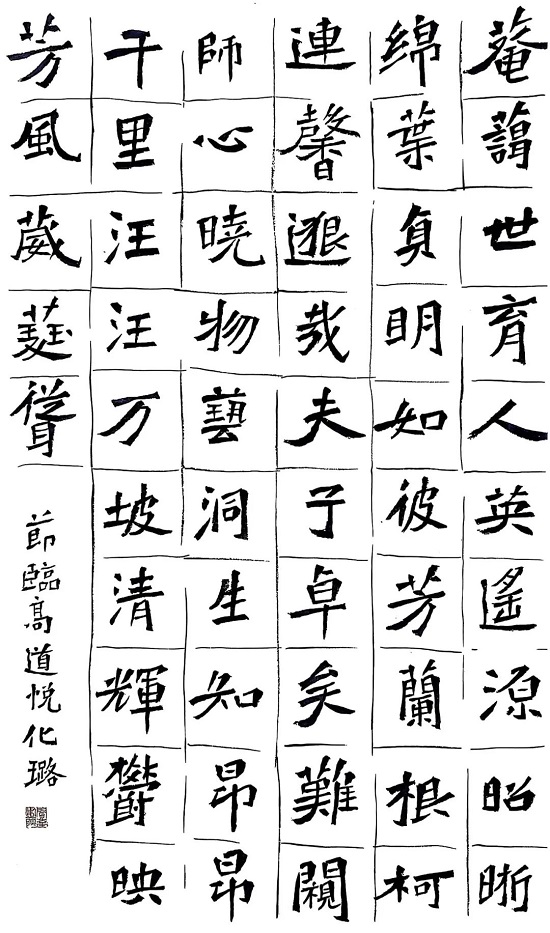 菴藹世育人英遙源昭晰
綿葉貞明如彼芳蘭根柯
連馨邈哉夫子卓矣難闚
師心曉物藝洞生知昂昂
千里汪汪万坡清輝欝映
芳風葳蕤聳
節臨高道悅化璐